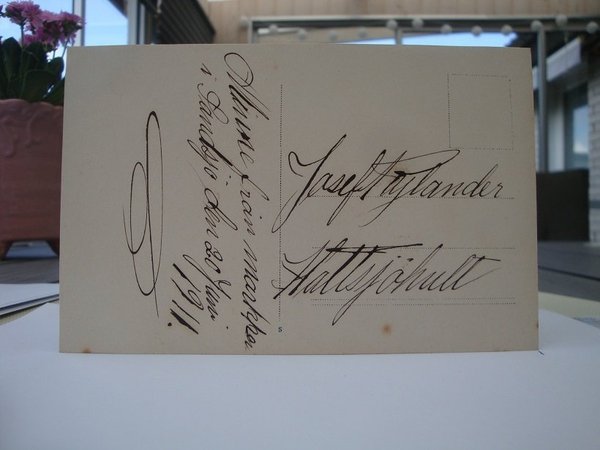 Minne från
i Sandsjö den 20 Juni
1911.
Josef Thylander
Hattsjöhult
5